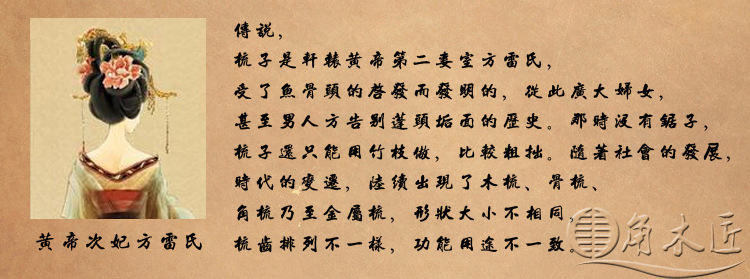 傳說，
梳子是軒轅黃帝第二妻室方雷氏，
受了魚骨頭的啓發而發明的，從此廣大婦女，
甚至男人方告别蓬頭垢面的歷史。那時没有鋸子，
梳子還只能用竹枝做，比較粗拙。隨著社會的發展，
時代的變遷，陸續出現了木梳、骨梳、
角梳乃至金屬梳，形狀大小不相同，
梳齒排列不一樣，功能用途不一致。
黄帝次妃方雷氏
角木匠